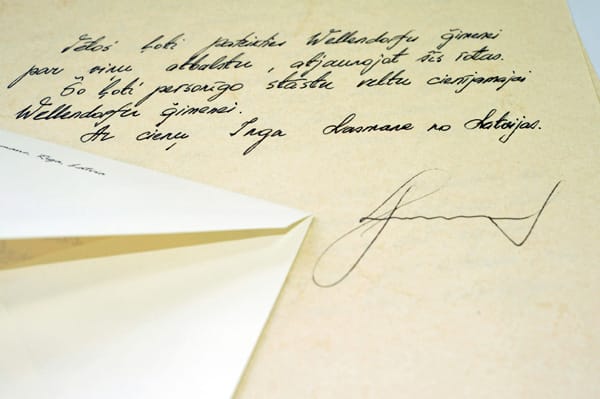 Vēlos ļoti pateikties Wellendorfu ģimenei
par viņu atbalstu, atjaunojot šīs rotas.
Šo ļoti personīgo stāstu veltu cienījamajai
Wellendorfu ģimenei.
Ar cieņu Inga Lasmane no Latvijas.
Riga, Latvia